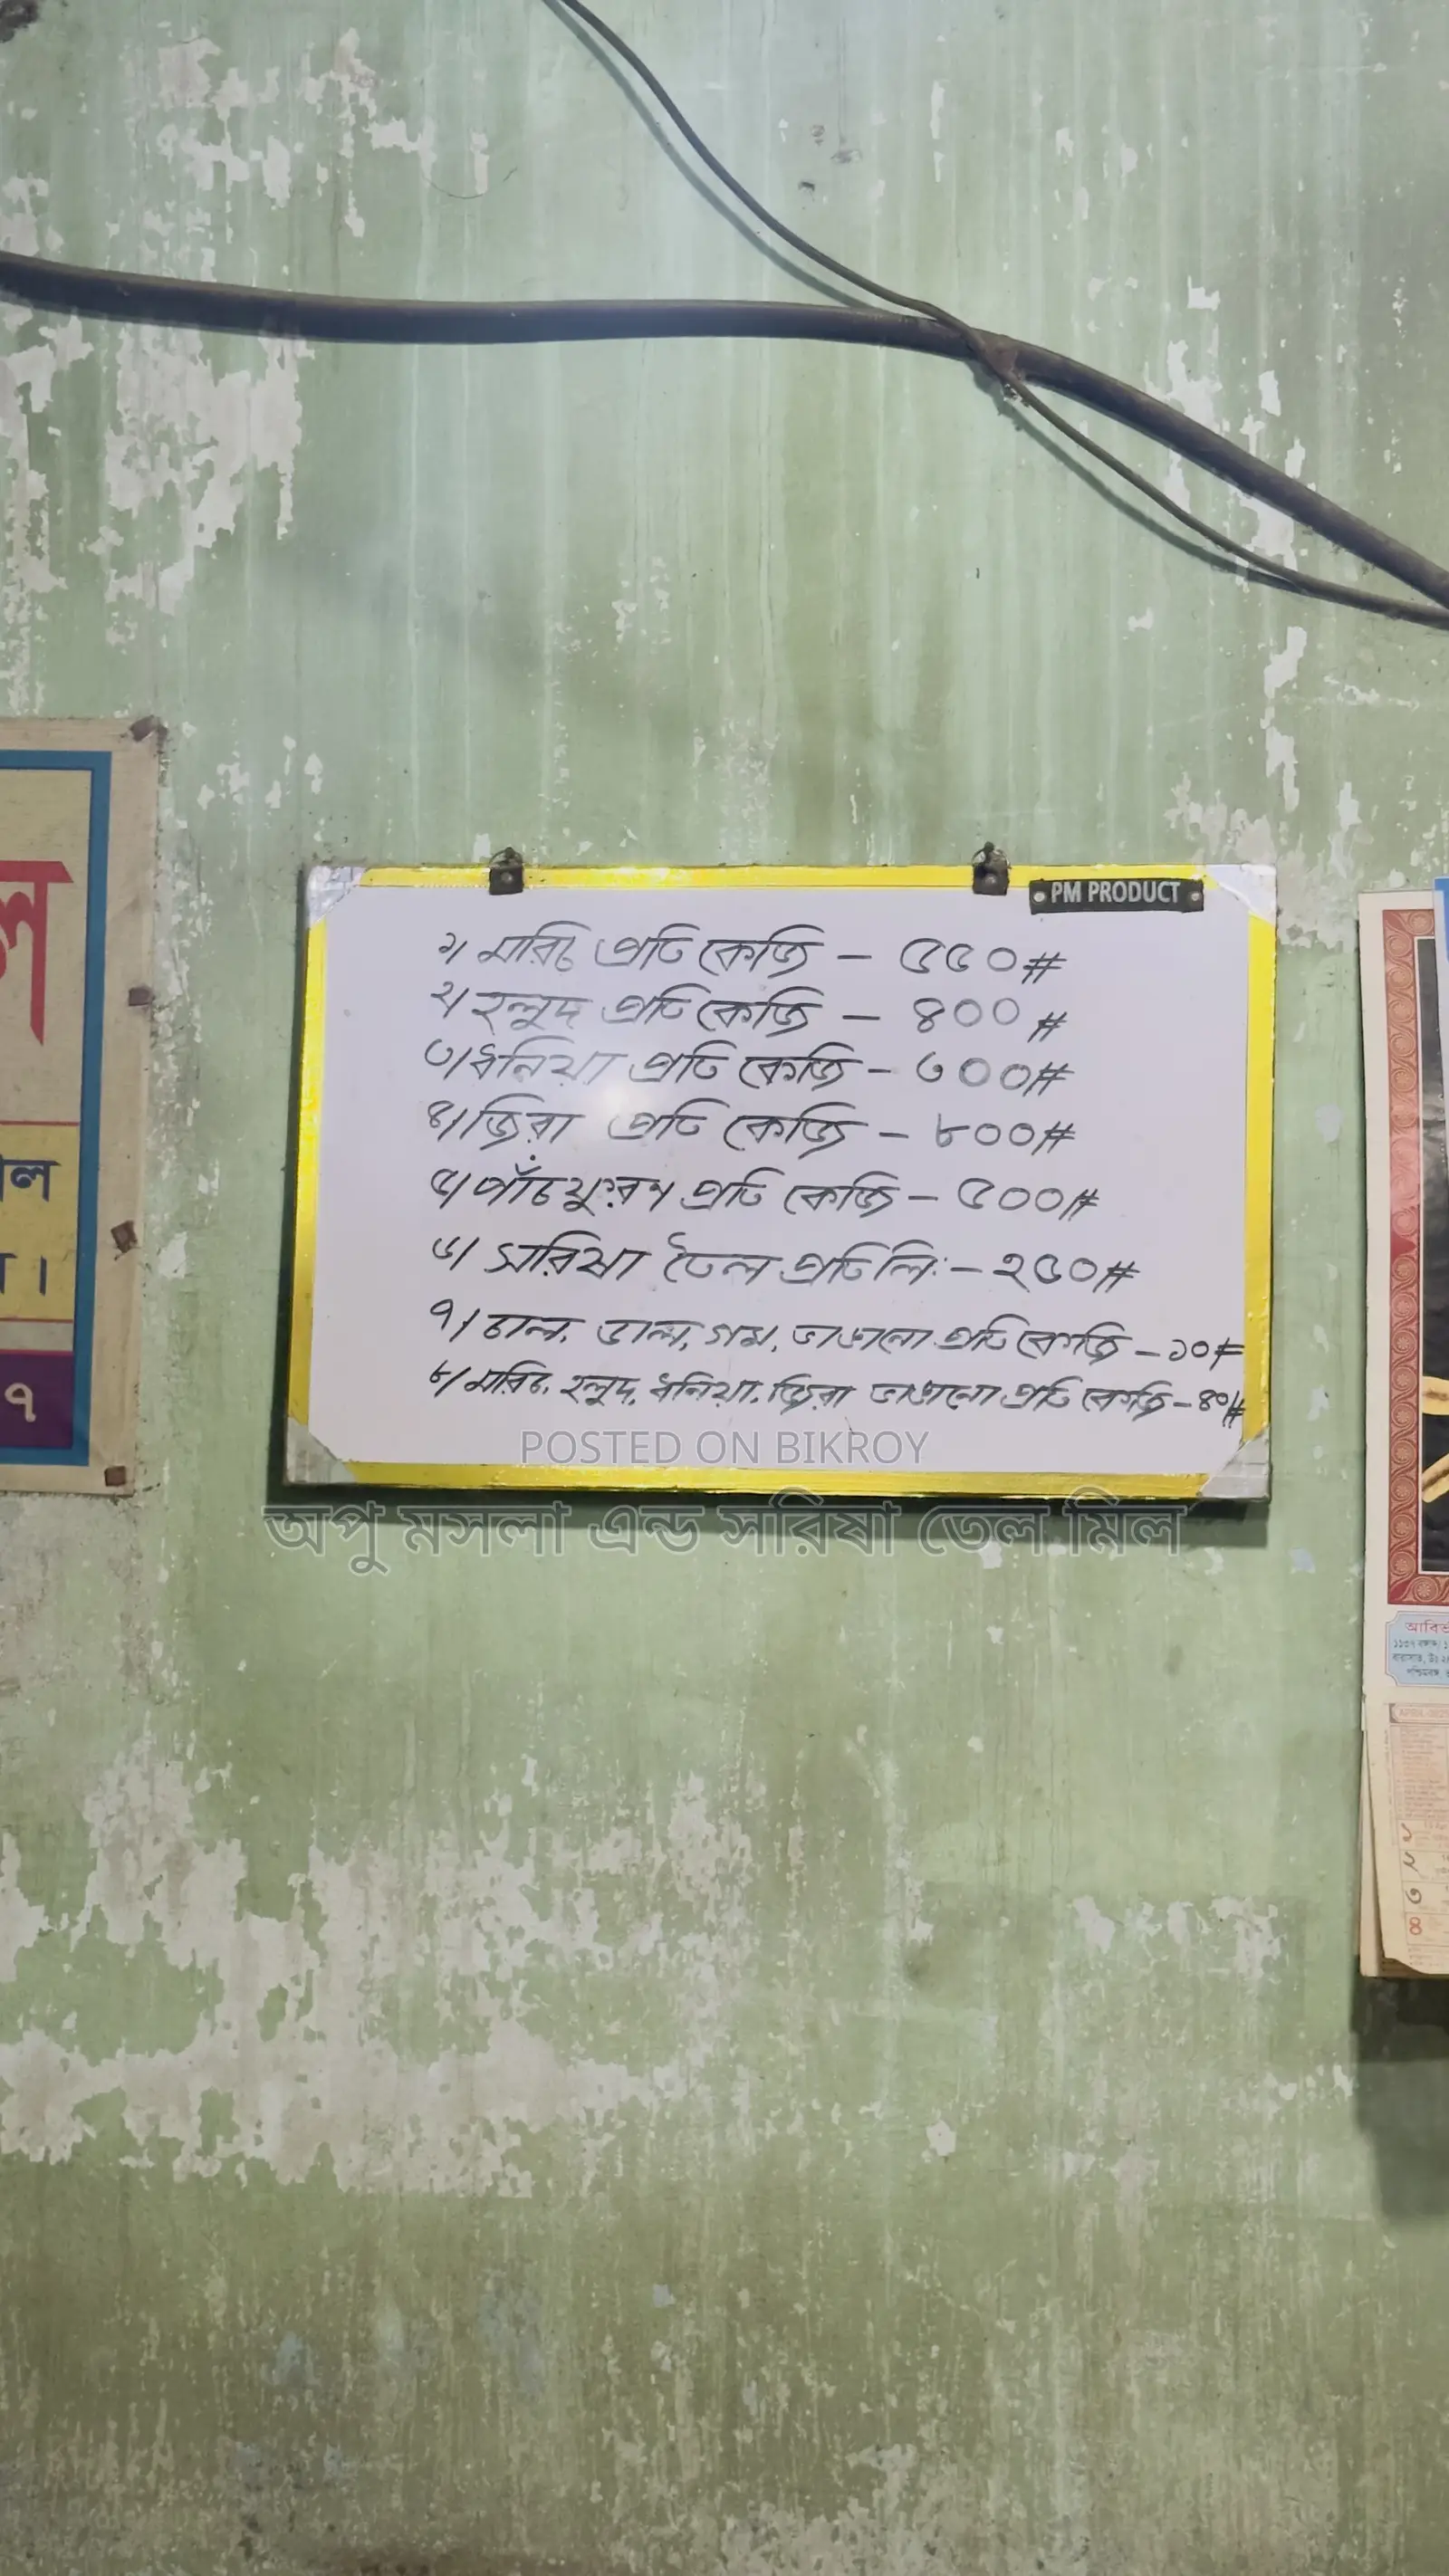 PM PRODUCT
১/ মরিচ প্রতি কেজি – ৫৫০#
২/ হলুদ প্রতি কেজি – ৪০০#
৩/ ধনিয়া প্রতি কেজি – ৩০০#
৪/ জিরা প্রতি কেজি – ৮০০#
৫/ পাঁচফুরণ প্রতি কেজি – ৫০০#
৬/ সরিষা তৈল প্রতি লি: – ২৫০#
৭/ চাল, ডাল, গম, ভাঙানো প্রতি কেজি – ১০#
৮/ মরিচ, হলুদ, ধনিয়া, জিরা ভাঙানো প্রতি কেজি – ৪০#
POSTED ON BIKROY
অপু মসলা এন্ড সরিষা তেল মিল
ল
৭
১
২
৩
৪